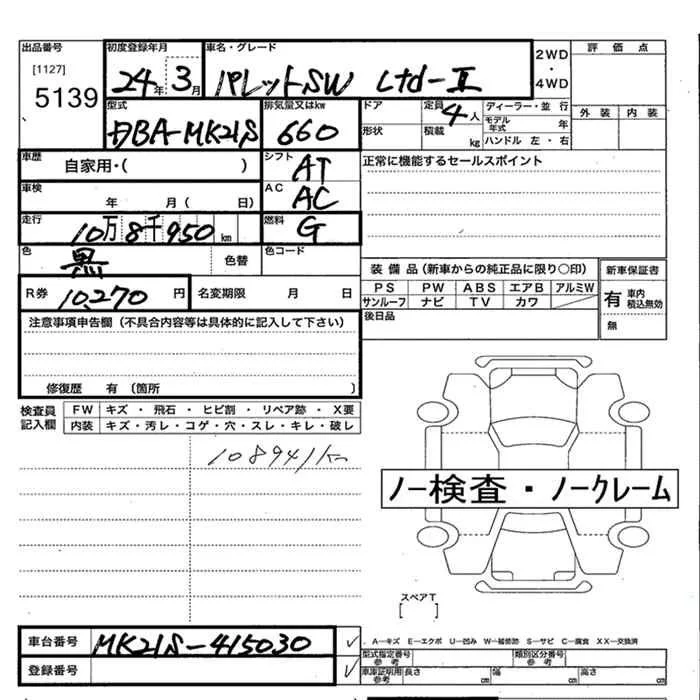 出品番号 [1127] 5139
初度登録年月 24年 3月
車名・グレード パレットSW Ltd-II
2WD・4WD
評価点
型式 DBA-MK21S
排気量又はkw 660
ドア
形状
定員 4人
積載 kg
ディーラー・並 行
モデル年式 年
ハンドル 左・右
外装 内装
車歴 自家用・( )
シフト AT
正常に機能するセールスポイント
車検 年 月( 日)
AC AC
走行 10万8千950km
燃料 G
色 黒 色替
色コード
装備品(新車からの純正品に限り〇印)
新車保証書
PS PW ABS エアB アルミW
サンルーフ ナビ TV カワ
有 車内積込無効
無
R券 10,270円
名変期限 月 日
後日品
注意事項申告欄(不具合内容等は具体的に記入して下さい)
修復歴 有(箇所 )
検査員記入欄
FW キズ・飛石・ヒビ割・リペア跡・X要
内装 キズ・汚レ・コゲ・穴・スレ・キレ・破レ
108941km
ノー検査・ノークレーム
スペアT
[ ]
車台番号 MK21S-415030 ✓
A−キズ E−エクボ U−凹み W−補修跡 S−サビ C−腐食 XX−交換済
型式指定番号 参考
類別区分番号 参考
登録番号 ✓
車庫証明用参考 長さ cm 幅 cm 高さ cm